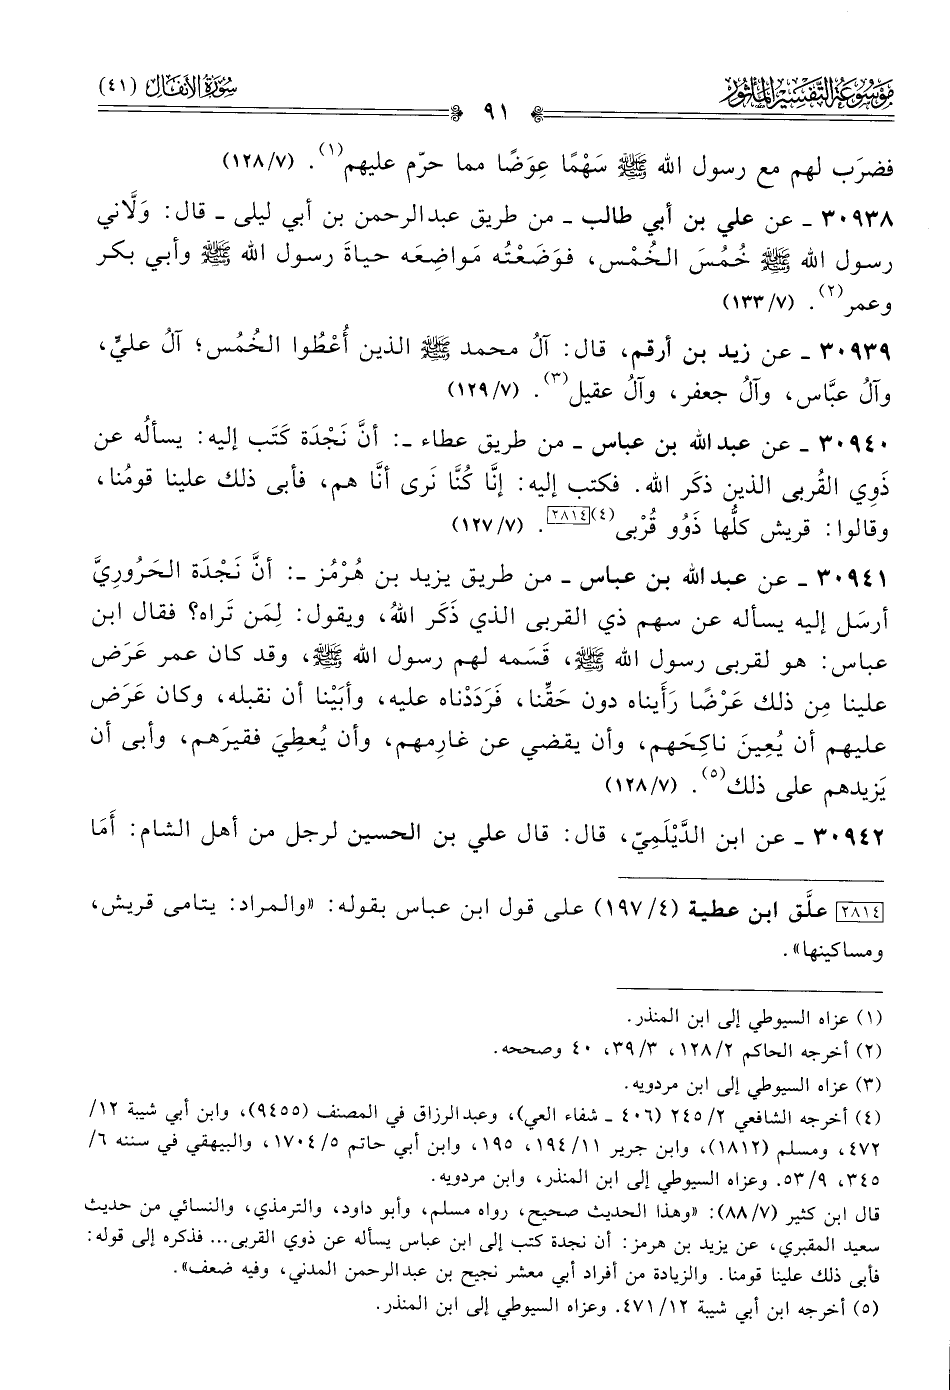 موسوعة التفسير المأثور
سورة الأنفال (٤١)
٩١
فضرَب لهم مع رسول الله ﷺ سَهْمًا عِوَضًا مما حرّم عليهم(١). (١٢٨/٧)
٣٠٩٣٨ ـ عن علي بن أبي طالب ـ من طريق عبدالرحمن بن أبي ليلى ـ قال: وَلَّاني
رسول الله ﷺ خُمُسَ الخُمْس، فوَضَعْتُه مَواضِعَه حياةَ رسول الله ﷺ وأبي بكر
وعمر(٢). (١٣٣/٧)
٣٠٩٣٩ ـ عن زيد بن أرقم، قال: آلُ محمد ﷺ الذين أُعْطُوا الخُمُس؛ آلُ عليٍّ،
وآلُ عبَّاس، وآلُ جعفر، وآلُ عقيل(٣). (١٢٩/٧)
٣٠٩٤٠ ـ عن عبدالله بن عباس ـ من طريق عطاء ـ: أنَّ نَجْدَة كَتَب إليه: يسألُه عن
ذَوِي القُربى الذين ذكَر الله. فكتب إليه: إنَّا كُنَّا نَرى أنَّا هم، فأبى ذلك علينا قومُنا،
وقالوا: قريش كلُّها ذَوُو قُرْبى(٤)[٢٨١٤]. (١٢٧/٧)
٣٠٩٤١ ـ عن عبدالله بن عباس ـ من طريق يزيد بن هُرْمُز ـ: أنَّ نَجْدَة الحَرُورِيَّ
أرسَل إليه يسأله عن سهم ذي القربى الذي ذَكَر اللهُ، ويقول: لِمَن تَراه؟ فقال ابن
عباس: هو لقربى رسول الله ﷺ، قَسَمه لهم رسول الله ﷺ، وقد كان عمر عَرَض
علينا مِن ذلك عَرْضًا رَأَيناه دون حَقِّنا، فَرَدَدْناه عليه، وأبَيْنا أن نقبله، وكان عَرَض
عليهم أن يُعِينَ ناكِحَهم، وأن يقضي عن غارِمهم، وأن يُعطِيَ فقيرَهم، وأبى أن
يَزيدهم على ذلك(٥). (١٢٨/٧)
٣٠٩٤٢ ـ عن ابن الدَّيْلَمِيّ، قال: قال علي بن الحسين لرجل من أهل الشام: أَمَا
[٢٨١٤] علَّق ابن عطية (١٩٧/٤) على قول ابن عباس بقوله: «والمراد: يتامى قريش،
ومساكينها».
(١) عزاه السيوطي إلى ابن المنذر.
(٢) أخرجه الحاكم ١٢٨/٢، ٣٩/٣، ٤٠ وصححه.
(٣) عزاه السيوطي إلى ابن مردويه.
(٤) أخرجه الشافعي ٢٤٥/٢ (٤٠٦ ـ شفاء العي)، وعبدالرزاق في المصنف (٩٤٥٥)، وابن أبي شيبة ١٢/
٤٧٢، ومسلم (١٨١٢)، وابن جرير ١٩٤/١١، ١٩٥، وابن أبي حاتم ١٧٠٤/٥، والبيهقي في سننه ٦/
٣٤٥، ٥٣/٩. وعزاه السيوطي إلى ابن المنذر، وابن مردويه.
قال ابن كثير (٨٨/٧): «وهذا الحديث صحيح، رواه مسلم، وأبو داود، والترمذي، والنسائي من حديث
سعيد المقبري، عن يزيد بن هرمز: أن نجدة كتب إلى ابن عباس يسأله عن ذوي القربى... فذكره إلى قوله:
فأبى ذلك علينا قومنا. والزيادة من أفراد أبي معشر نجيح بن عبدالرحمن المدني، وفيه ضعف».
(٥) أخرجه ابن أبي شيبة ٤٧١/١٢. وعزاه السيوطي إلى ابن المنذر.